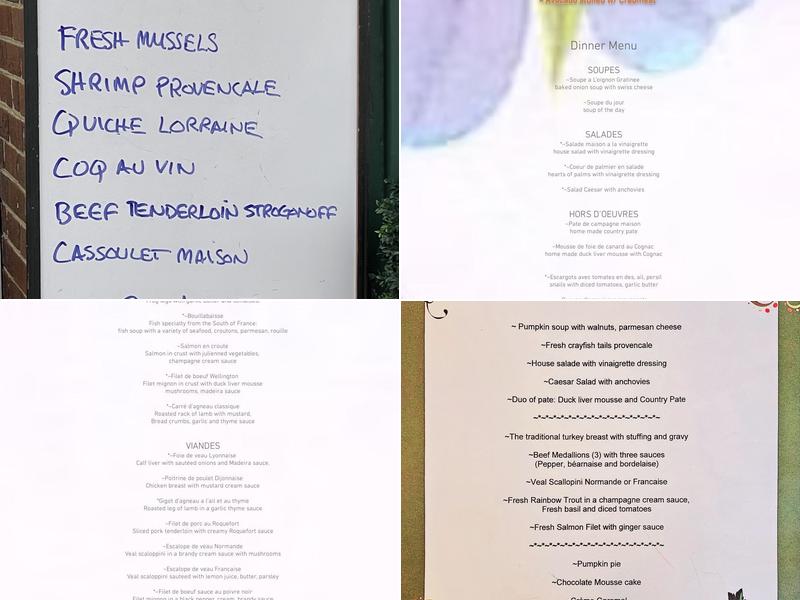 FRESH MUSSELS
SHRIMP PROVENCALE
QUICHE LORRAINE
COQ AU VIN
BEEF TENDERLOIN STROGANOFF
CASSOULET MAISON
~ Avocado stuffed w/ Crabmeat
Dinner Menu
SOUPES
~Soupe a L'oignon Gratinee
baked onion soup with swiss cheese
~Soupe du jour
soup of the day
SALADES
*~Salade maison a la vinaigrette
house salad with vinaigrette dressing
*~Coeur de palmier en salade
hearts of palms with vinaigrette dressing
*~Salad Caesar with anchovies
HORS D'OEUVRES
~Pate de campagne maison
home made country pate
~Mousse de foie de canard au Cognac
home made duck liver mousse with Cognac
*~Escargots avec tomates en des, ail, persil
snails with diced tomatoes, garlic butter
*~Bouillabaisse
Fish specialty from the South of France:
fish soup with a variety of seafood, croutons, parmesan, rouille
~Salmon en croute
Salmon in crust with julienned vegetables,
champagne cream sauce
*~Filet de boeuf Wellington
Filet mignon in crust with duck liver mousse
mushrooms, madeira sauce
*~Carré d'agneau classique
Roasted rack of lamb with mustard,
Bread crumbs, garlic and thyme sauce
VIANDES
*~Foie de veau Lyonnaise
Calf liver with sautéed onions and Madeira sauce.
~Poitrine de poulet Dijonnaise
Chicken breast with mustard cream sauce
*Gigot d'agneau a l'ail et au thyme
Roasted leg of lamb in a garlic thyme sauce
~Filet de porc au Roquefort
Sliced pork tenderloin with creamy Roquefort sauce
~Escalope de veau Normande
Veal scaloppini in a brandy cream sauce with mushrooms
~Escalope de veau Française
Veal scaloppini sauteed with lemon juice, butter, parsley
*~Filet de boeuf sauce au poivre noir
Filet mignon in a black pepper, cream, brandy sauce
~ Pumpkin soup with walnuts, parmesan cheese
~Fresh crayfish tails provencale
~House salad with vinaigrette dressing
~Caesar Salad with anchovies
~Duo of pate: Duck liver mousse and Country Pate
~*~*~*~*~*~*~*~*~*~*~*~*~*~
~The traditional turkey breast with stuffing and gravy
~Beef Medallions (3) with three sauces
(Pepper, béarnaise and bordelaise)
~Veal Scallopini Normande or Francaise
~Fresh Rainbow Trout in a champagne cream sauce,
Fresh basil and diced tomatoes
~Fresh Salmon Filet with ginger sauce
~*~*~*~*~*~*~*~*~*~*~*~*~*~*~
~Pumpkin pie
~Chocolate Mousse cake
~Crème Caramel